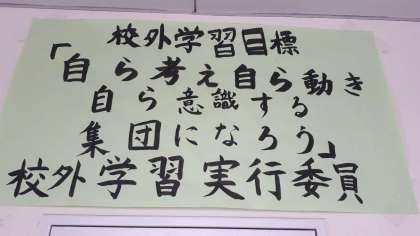 校外学習目標
「自ら考え自ら動き
自ら意識する
集団になろう」
校外学習実行委員